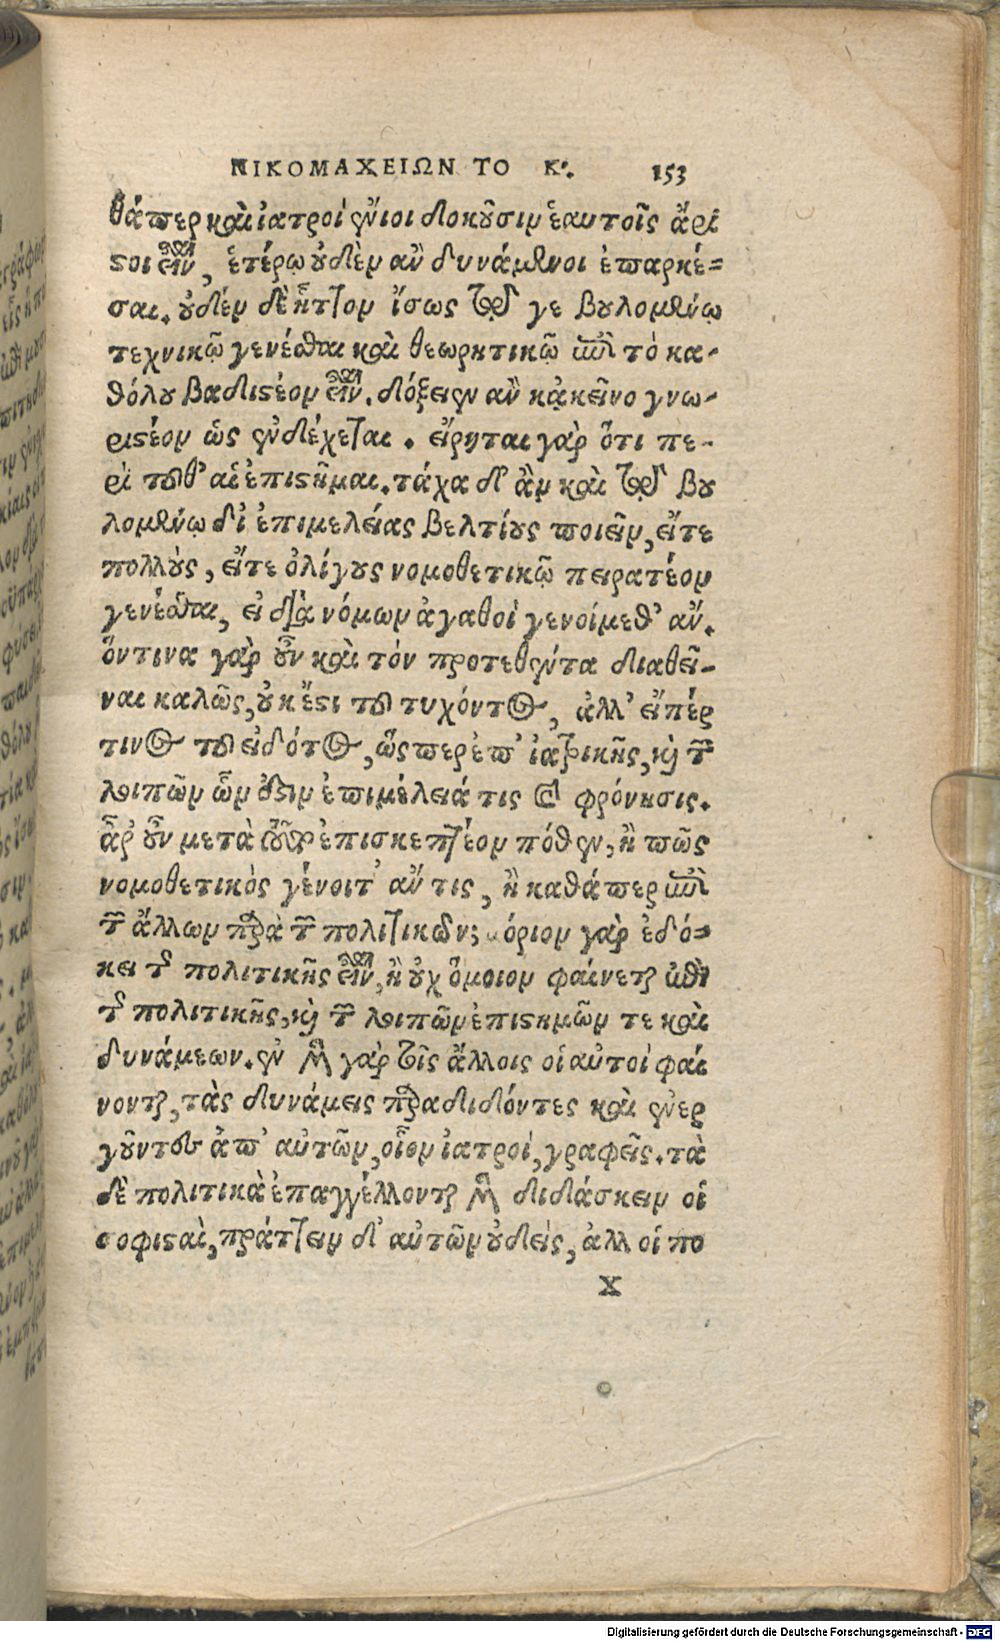 ΝΙΚΟΜΑΧΕΙΩΝ ΤΟ Κ. 153
θάπερ καὶ ἰατροί ἔνιοι δοκοῦσιν ἑαυτοῖς ἄρι
στοι εἶναι, ἑτέρῳ οὐδὲν ἂν δυνάμενοι ἐπαρκέ-
σαι. οὐδέν δὲ ἧττον ἴσως τῷ γε βουλομένῳ
τεχνικῷ γενέσθαι καὶ θεωρητικῷ ἐπὶ τὸ κα-
θόλου βαδιστέον εἶναι. δόξειεν ἂν κἀκεῖνο γνω-
ριστέον ὡς ἐνδέχεται. εἴρηται γὰρ ὅτι πε-
ρὶ τοῦθ' αἱ ἐπιστῆμαι. τάχα δ' ἂν καὶ τῷ βου
λομένῳ δι' ἐπιμελείας βελτίους ποιεῖν, εἴτε
πολλοὺς, εἴτε ὀλίγους νομοθετικῷ πειρατέον
γενέσθαι, εἰ διὰ νόμων ἀγαθοὶ γενοίμεθ' ἄν.
ὅντινα γὰρ οὖν καὶ τὸν προτεθέντα διαθεῖ-
ναι καλῶς, οὐκ ἔστι τοῦ τυχόντος, ἀλλ' εἴπερ
τινος τοῦ εἰδότος, ὥσπερ ἐπ' ἰατρικῆς, καὶ τῶν
λοιπῶν ὧν ἐστιν ἐπιμέλειά τις καὶ φρόνησις.
ἆρ' οὖν μετὰ τοῦτο ἐπισκεπτέον πόθεν, ἢ πῶς
νομοθετικὸς γένοιτ' ἄν τις, ἢ καθάπερ ἐπὶ
τῶν ἄλλων παρὰ τῶν πολιτικῶν; μόριον γὰρ ἐδό-
κει τῆς πολιτικῆς εἶναι, ἢ οὐχ ὅμοιον φαίνεται ἐπὶ
τῆς πολιτικῆς, καὶ τῶν λοιπῶν ἐπιστημῶν τε καὶ
δυνάμεων. ἐν μὲν γὰρ τοῖς ἄλλοις οἱ αὐτοὶ φαί
νονται, τὰς δυνάμεις παραδιδόντες καὶ ἐνερ
γοῦντες ἀπ' αὐτῶν, οἷον ἰατροί, γραφεῖς. τὰ
δὲ πολιτικὰ ἐπαγγέλλονται μὲν διδάσκειν οἱ
σοφισταὶ, πράττειν δ' αὐτῶν οὐδείς, ἀλλ οἱ πο
X
Digitalisierung gefördert durch die Deutsche Forschungsgemeinschaft - DFG